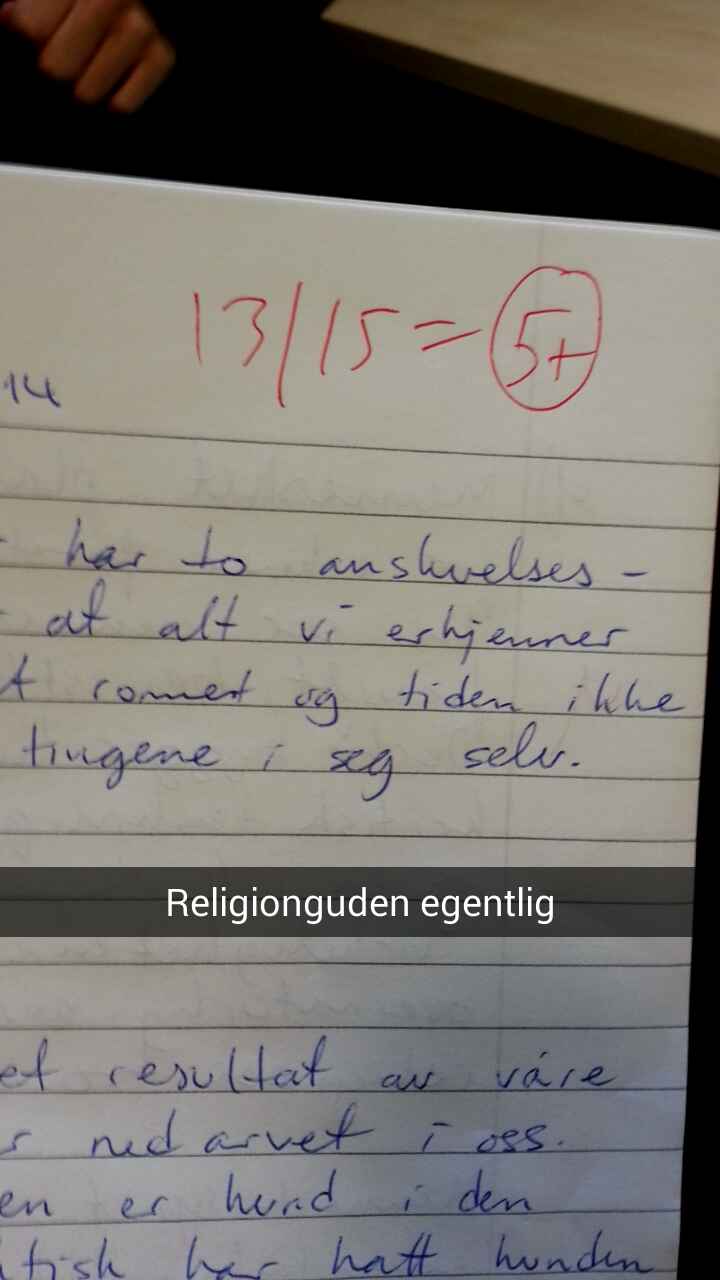 13/15 = 5+
14
har to anskuelses-
at alt vi erkjenner
t rommet og tiden ikke
tingene i seg selv.
Religionguden egentlig
et resultat av våre
r nedarvet i oss.
en er hund i den
tisk har hatt hunden